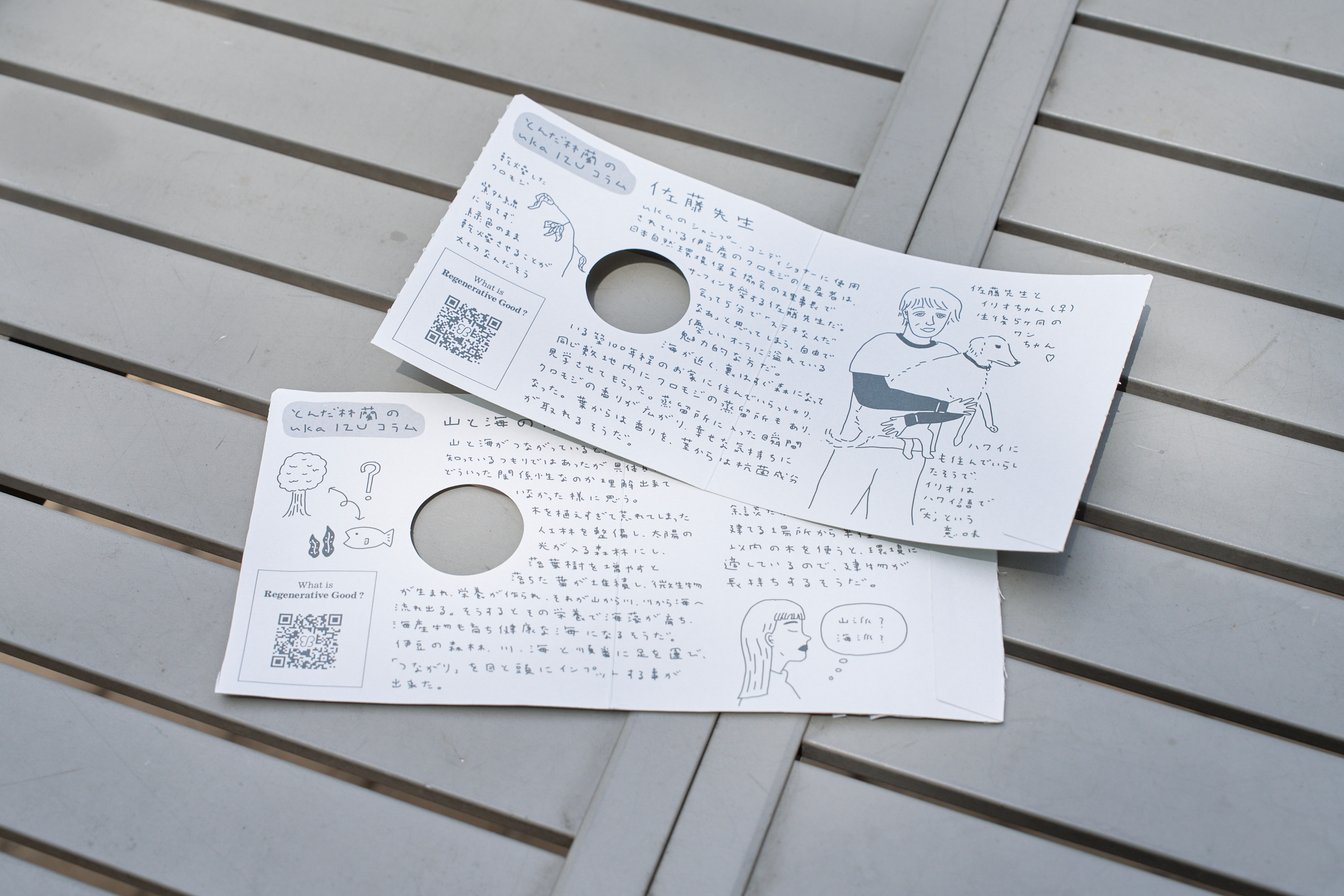 とんだ林蘭の
uka IZU コラム
乾燥した
クロモジ
紫外線
に当てず
緑色のまま
乾燥させることが
大切なんだそう
What is
Regenerative Good?
佐藤先生
ukaのシャンプー、コンディショナーに使用
されている伊豆産のクロモジの生産者は、
日本自然環境保全協会の理事長で
サーフィンを愛する佐藤先生だ。
会って5分で「ステキな人だ
なあ」と思ってしまう、自由で
優しいオーラに溢れている
魅力的な方だ。
海が近く、裏はすぐ森になって
いる築100年程のお家に住んでいらっしゃり、
同じ敷地内にクロモジの蒸留所もあり、
見学させてもらった。蒸留所に入った瞬間
クロモジの香りが広がり、幸せな気持ちに
なった。葉からは香りを、茎からは抗菌成分
が取れるそうだ。
佐藤先生と
イリオちゃん(♀)
生後5ヶ月の
ワン
ちゃん
♡
ハワイに
も住んでいらし
たそうで、
イリオは
ハワイ語で
「犬」という
意味
とんだ林蘭の
uka IZU コラム
?
What is
Regenerative Good?
山と海の
山と海がつながっていると
知っているつもりではあったが、具体的
どういった関係性なのか理解出来て
いなかった様に思う。
木を植えすぎて荒れてしまった
人工林を整備し、太陽の
光が入る森林にし、
落葉樹を増やすと
落ちた葉が堆積し、微生物
が生まれ、栄養が作られ、それが山から川、川から海へ
流れ出る。そうするとその栄養で海藻が育ち、
海産物も育ち健康な海になるそうだ。
伊豆の森林、川、海と順番に足を運び、
「つながり」を目と頭にインプットする事が
出来た。
建てる場所から
以内の木を使うと、環境に
適しているので、建物が
長持ちするそうだ。
山派?
海派?